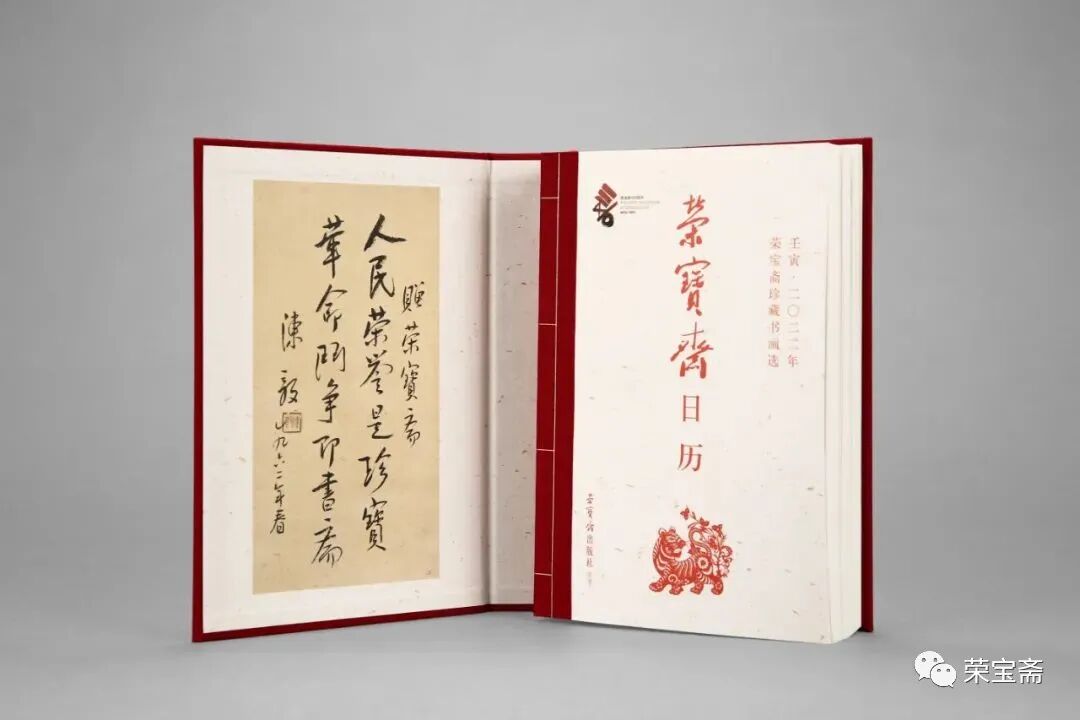 贈荣寳斋
人民荣誉是珍寳
革命鬥争即書斋
陳毅
一九六二年春
榮寶齋
日历
壬寅·二〇二二年
荣宝斋珍藏书画选
荣宝斋出版社
荣宝斋